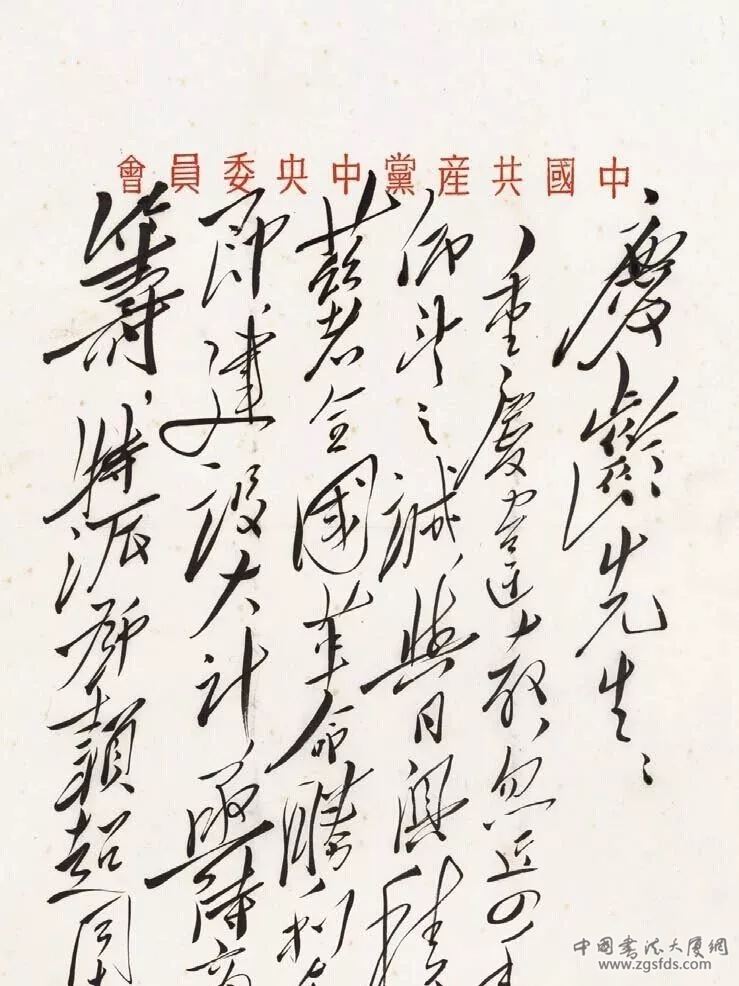 中國共産黨中央委員會
慶齡先生：
重慶違教，忽近四年
仰望之誠，與日俱積
茲者全國革命勝利在
即，建設大計，亟待商
籌，特派鄧穎超同
中国书法大厦網
www.zgsfds.com